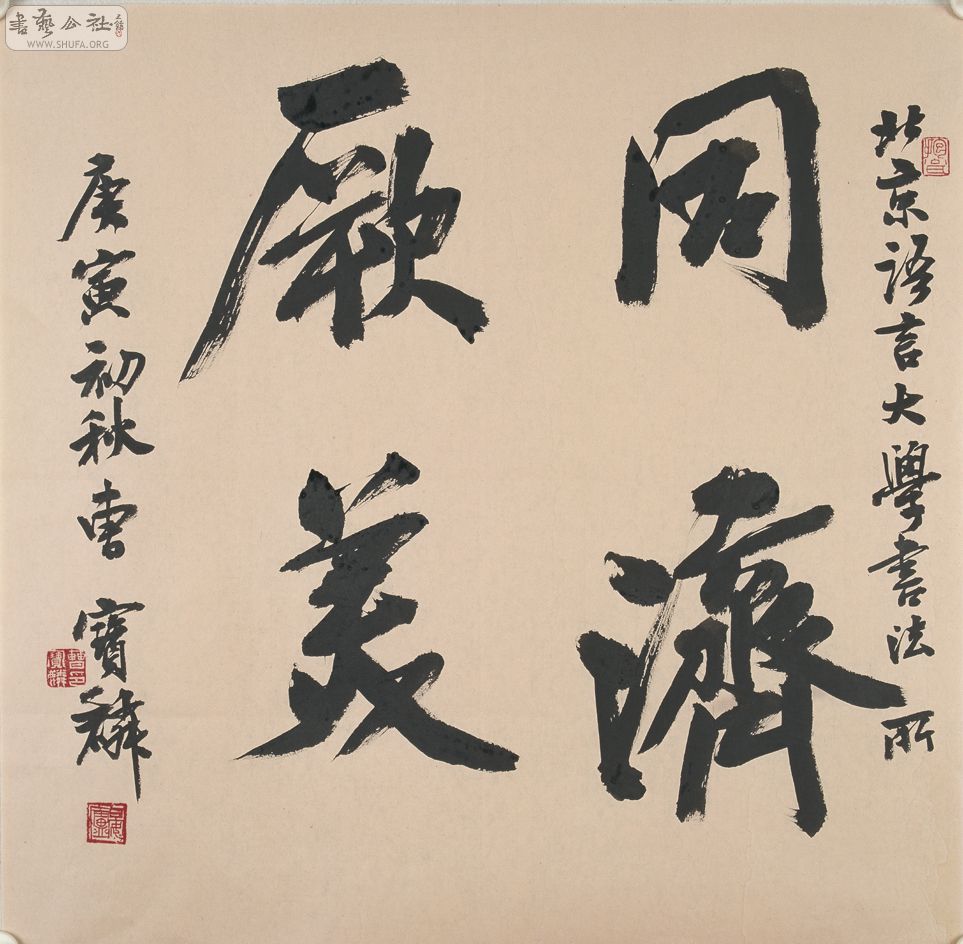 書藝公社
WWW.SHUFA.ORG
北京语言大學書法所
同濟
厥美
庚寅初秋曹寶麟